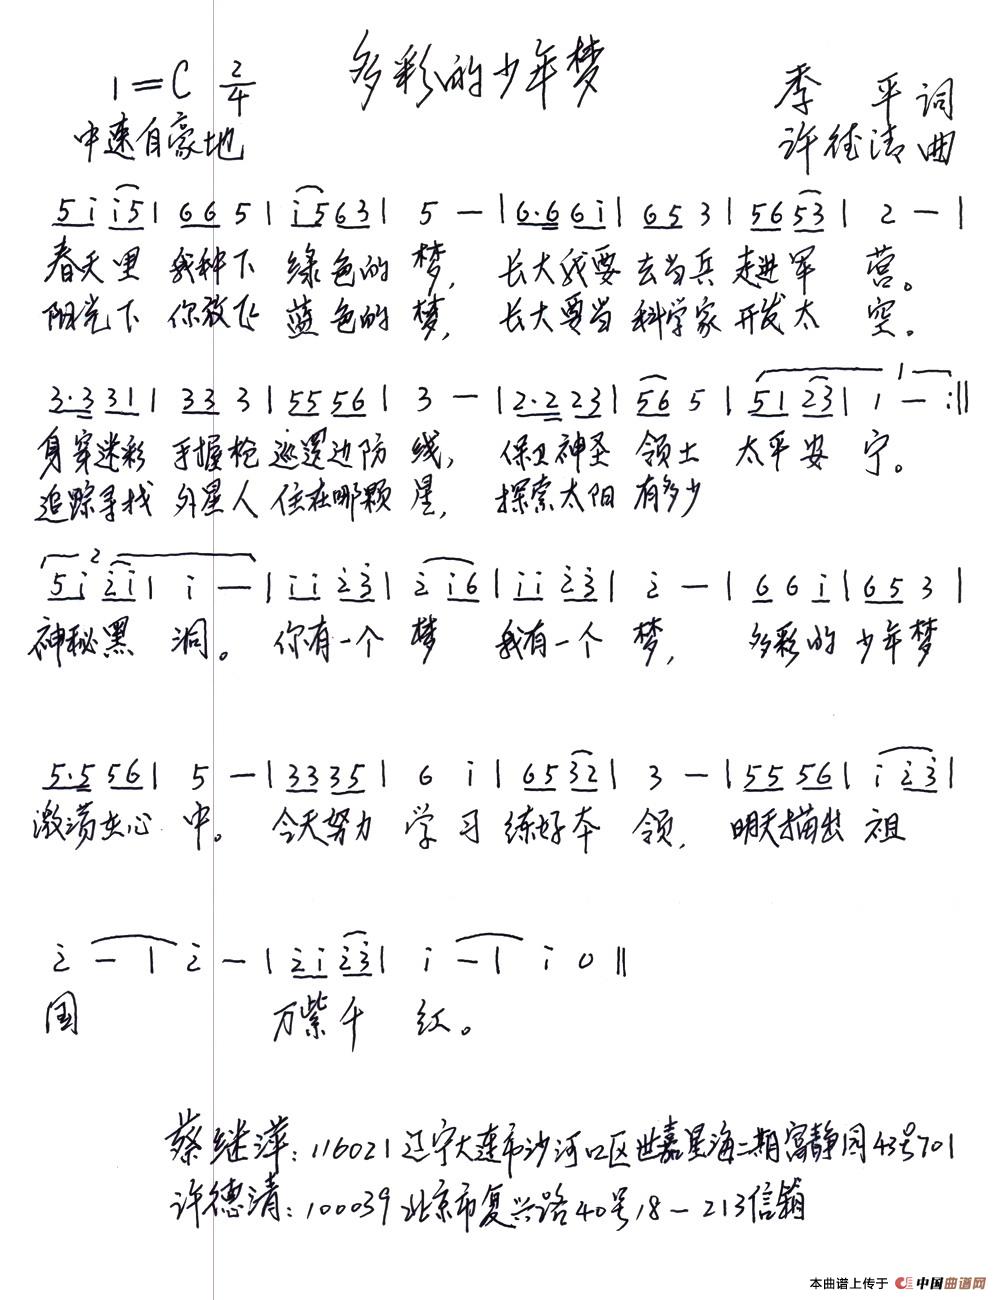 多彩的少年梦
1=C 2/4
中速自豪地
季 平 词
许德清 曲
5 i i5 | 6 6 5 | i5 63 | 5 — | 6·6 6i | 65 3 | 56 53 | 2 — |
春天里 我种下 绿色的 梦， 长大我要 去当兵 走进军 营。
阳光下 你放飞 蓝色的 梦， 长大要当 科学家 开发太 空。
3·3 31 | 33 3 | 55 56 | 3 — | 2·2 23 | 56 5 | 51 23 | 1 — :||
身穿迷彩 手握枪 巡逻边防 线， 保卫神圣 领土 太平安 宁。
追踪寻找 外星人 住在哪颗 星， 探索太阳 有多少
5i 2i | i — | i i 23 | 2 i6 | i i 23 | 2 — | 6 6 i | 65 3 |
神秘黑 洞。 你有一个 梦 我有一个 梦， 多彩的 少年梦
5·5 56 | 5 — | 33 35 | 6 i | 65 32 | 3 — | 55 56 | i 23 |
激荡在心 中。 今天努力 学习 练好本 领， 明天描出 祖
2 — | 2 — | 2i 23 | i — | i 0 ||
国 万紫千 红。
蔡继萍：116021 辽宁大连市沙河口区世嘉星海二期富静园43号701
许德清：100039 北京市复兴路40号18—213信箱
本曲谱上传于 中国曲谱网